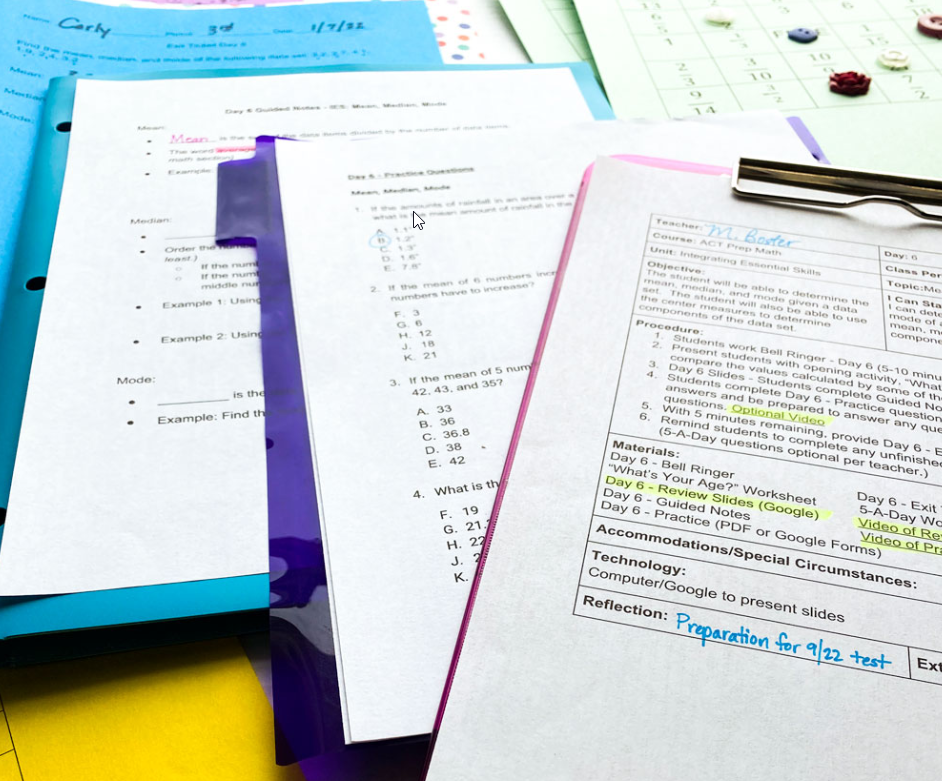 Name Carly Period 3rd Date 1/7/22
Exit Ticket Day 6
Find the mean, median, and mode of the following data set:
Mean:
Median
Mode:
Day 6 Guided Notes - IES: Mean, Median, Mode
Mean:
Mean is the of the data items divided by the number of data items.
The word average
math section)
Example:
Median:
Order the
least.)
If the num
If the num
middle nu
Example 1: Using
Example 2: Using
Mode:
is the
Example: Find th
Day 6 - Practice Questions
Mean, Median, Mode
1. If the amounts of rainfall in an area over a
what is the mean amount of rainfall in the
A. 1.1"
B. 1.2"
C. 1.3"
D. 1.6"
E. 7.6"
2. If the mean of 6 numbers incr
numbers have to increase?
F. 3
G. 6
H. 12
J. 18
K. 21
3. If the mean of 5 num
42, 43, and 35?
A. 33
B. 36
C. 36.8
D. 38
E. 42
4. What is th
F. 19
G. 21.
H. 22
J. 2
K.
Teacher: M. Bost­er
Course: ACT Prep Math
Day: 6
Unit: Integrating Essential Skills
Class Per
Objective:
The student will be able to determine the
mean, median, and mode given a data
set. The student will also be able to use
the center measures to determine
components of the data set.
Topic: Me
I Can Sta
I can dete
mode of
mean, m
compone
Procedure:
1. Students work Bell Ringer - Day 6 (5-10 minu
2. Present students with opening activity, "What
compare the values calculated by some of th
3. Day 6 Slides - Students complete Guided No
4. Students complete Day 6 - Practice question
answers and be prepared to answer any que
questions. Optional Video
5. With 5 minutes remaining, provide Day 6 - E
6. Remind students to complete any unfinishe
(5-A-Day questions optional per teacher.)
Materials:
Day 6 - Bell Ringer
"What's Your Age?" Worksheet
Day 6 - Review Slides (Google)
Day 6 - Guided Notes
Day 6 - Practice (PDF or Google Forms)
Day 6 - Exit
5-A-Day Wo
Video of Rev
Video of Pra
Accommodations/Special Circumstances:
Technology:
Computer/Google to present slides
Reflection: Preparation for 9/22 test
Ext